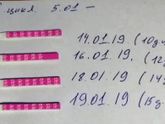 цикл 5.01 –
14.01.19 (10д
16.01.19 (12
18.01.19 (14
19.01.19 (15д